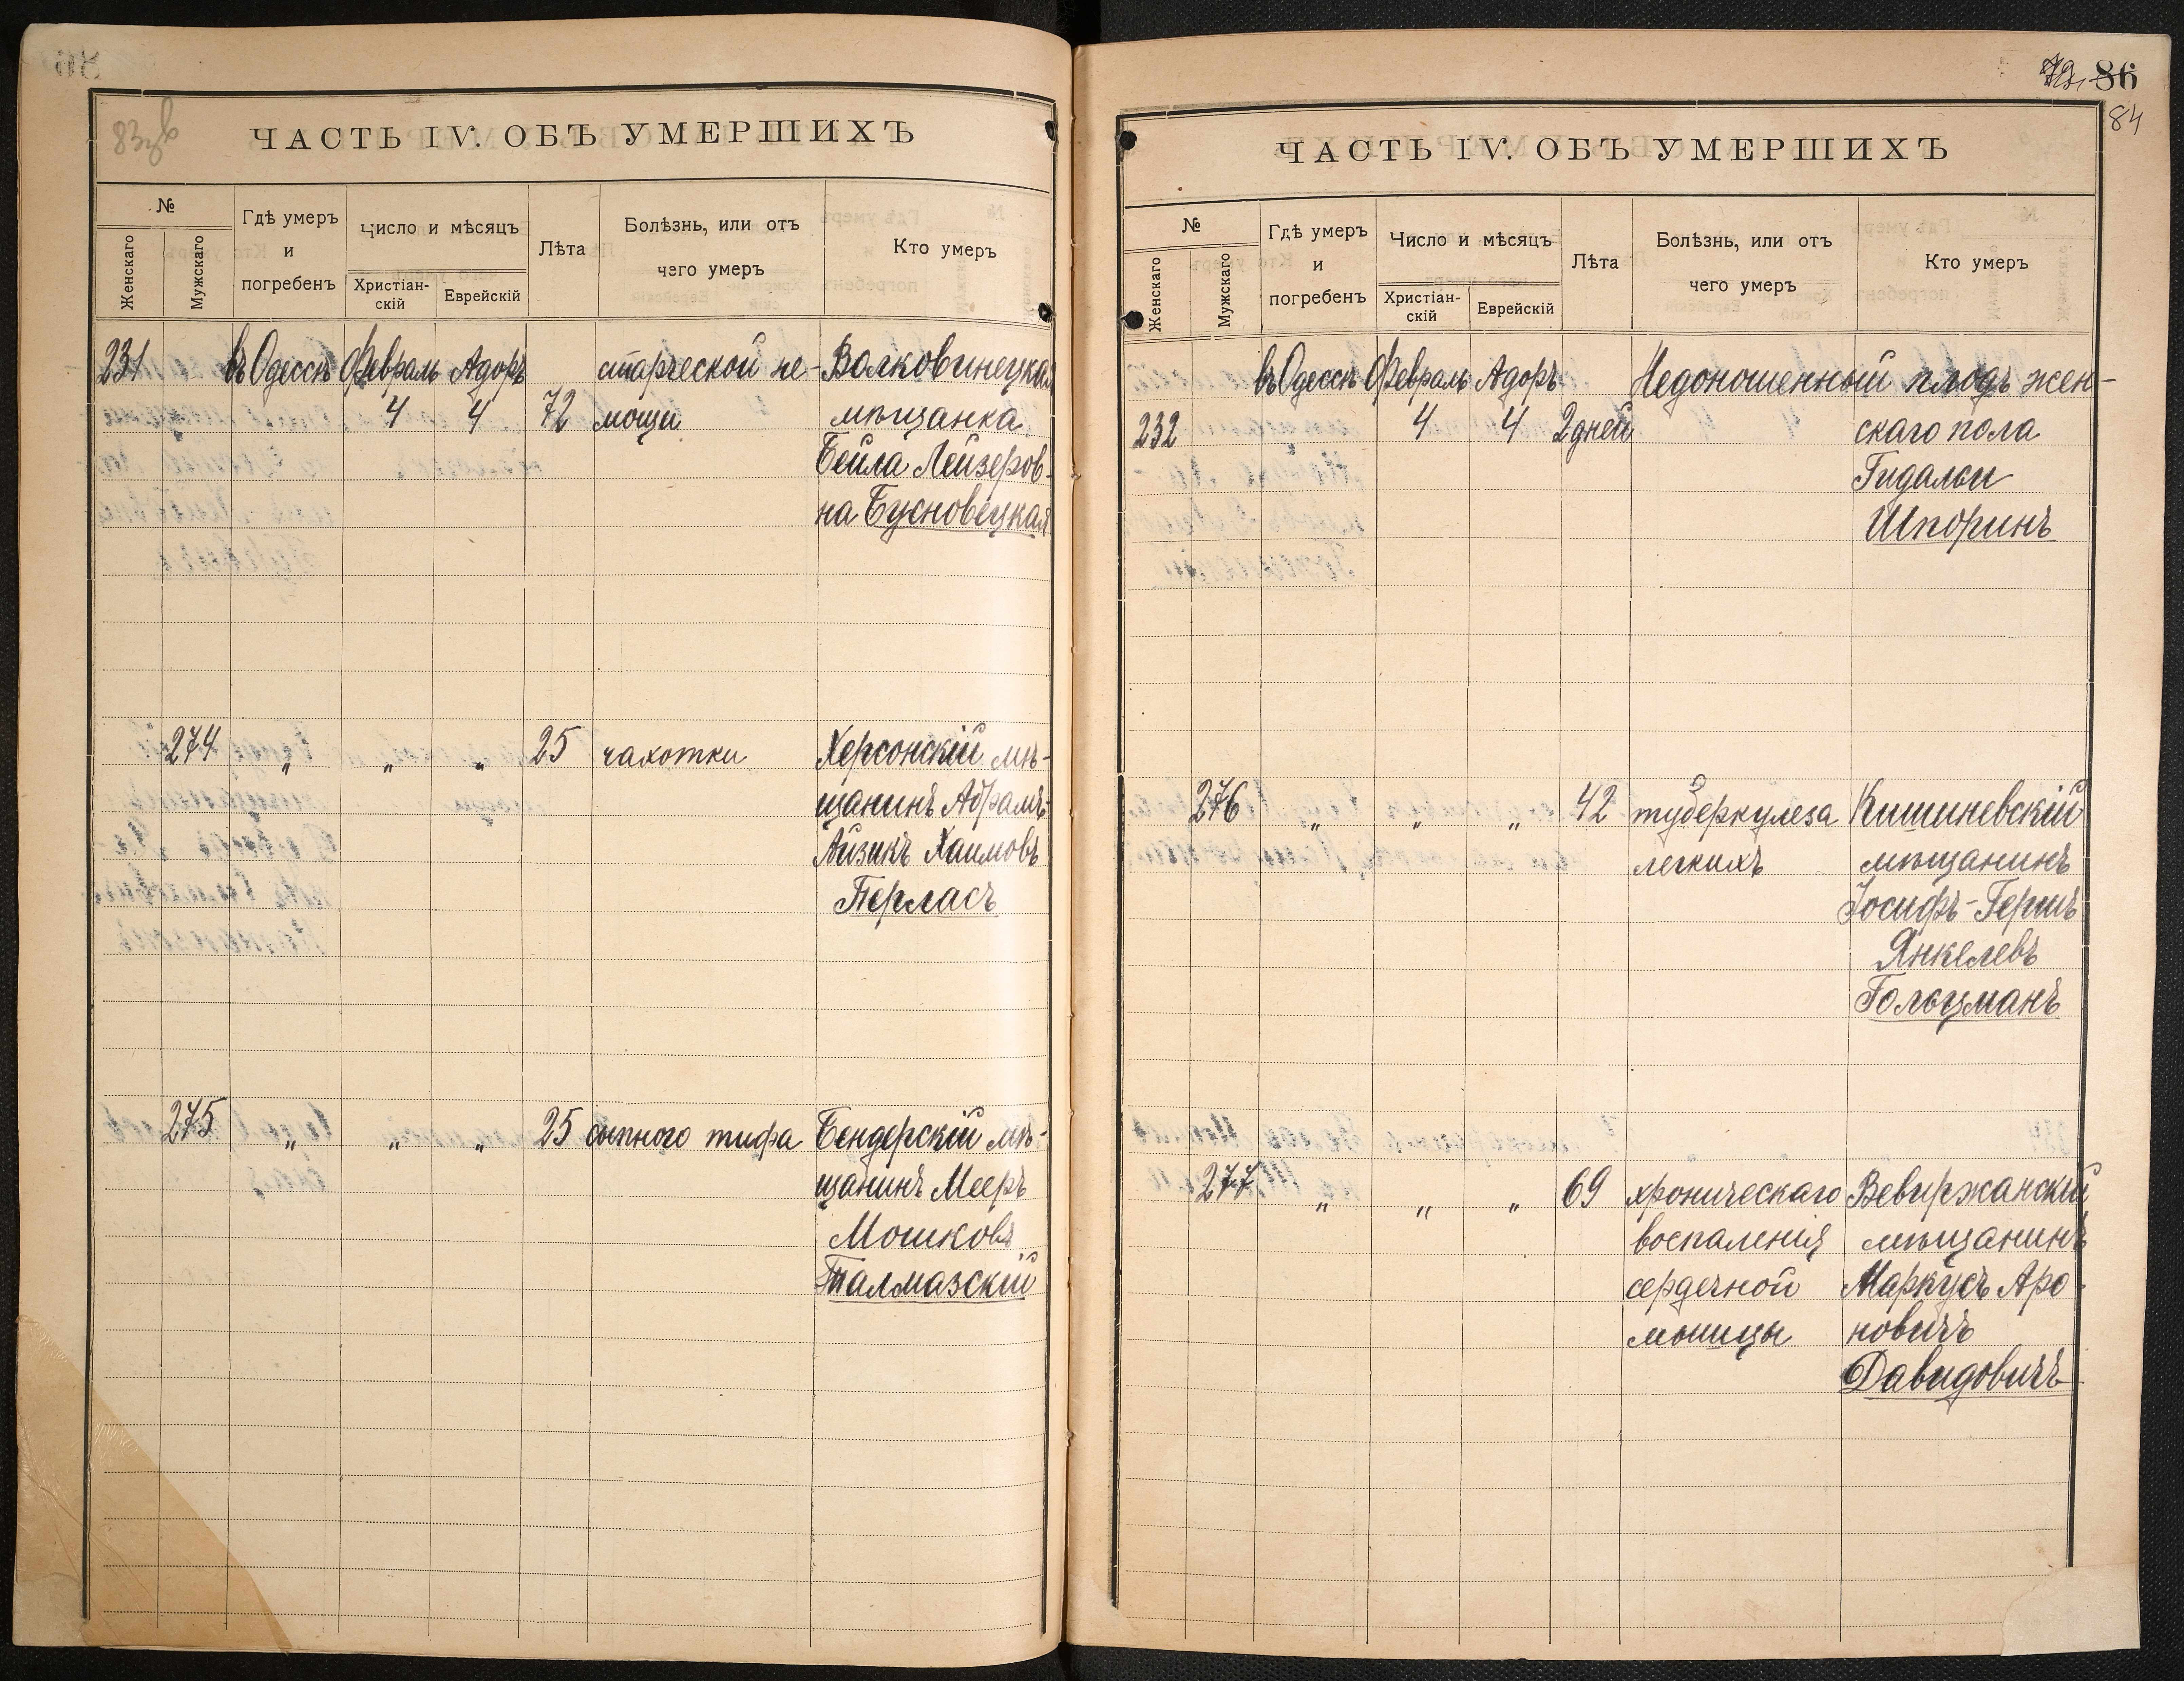 83зв
ЧАСТЬ IV. ОБЪ УМЕРШИХЪ
№
Женскаго
Мужскаго
Гдѣ умеръ
и
погребенъ
Число и мѣсяцъ
Христіан-
скій
Еврейскій
Лѣта
Болѣзнь, или отъ
чего умеръ
Кто умеръ
231 въ Одессѣ Февраль Адоръ старческой не- Волковинецкая
4 4 72 мощи мѣщанка
Бейла Лейзеров-
на Бусновецкая
274 " " " 25 чахотки Херсонскій мѣ-
щанинъ Абрамъ-
Айзикъ Хаимовъ
Перласъ
275 " " " 25 сыпного тифа Бендерскій мѣ-
щанинъ Мееръ
Мошковъ
Талмазскій
86
84
ЧАСТЬ IV. ОБЪ УМЕРШИХЪ
№
Женскаго
Мужскаго
Гдѣ умеръ
и
погребенъ
Число и мѣсяцъ
Христіан-
скій
Еврейскій
Лѣта
Болѣзнь, или отъ
чего умеръ
Кто умеръ
въ Одессѣ Февраль Адоръ Недоношенный плодъ жен-
232 4 4 2 дней скаго пола
Гидальи
Шпоринъ
276 " " " 42 туберкулеза Кишиневскій
легкихъ мѣщанинъ
Іосифъ-Гершъ
Янкелевъ
Гольцманъ
277 " " " 69 хроническаго Вевиржанскій
воспаленія мѣщанинъ
сердечной Маркусъ Аро-
мышцы новичъ
Давидовичъ